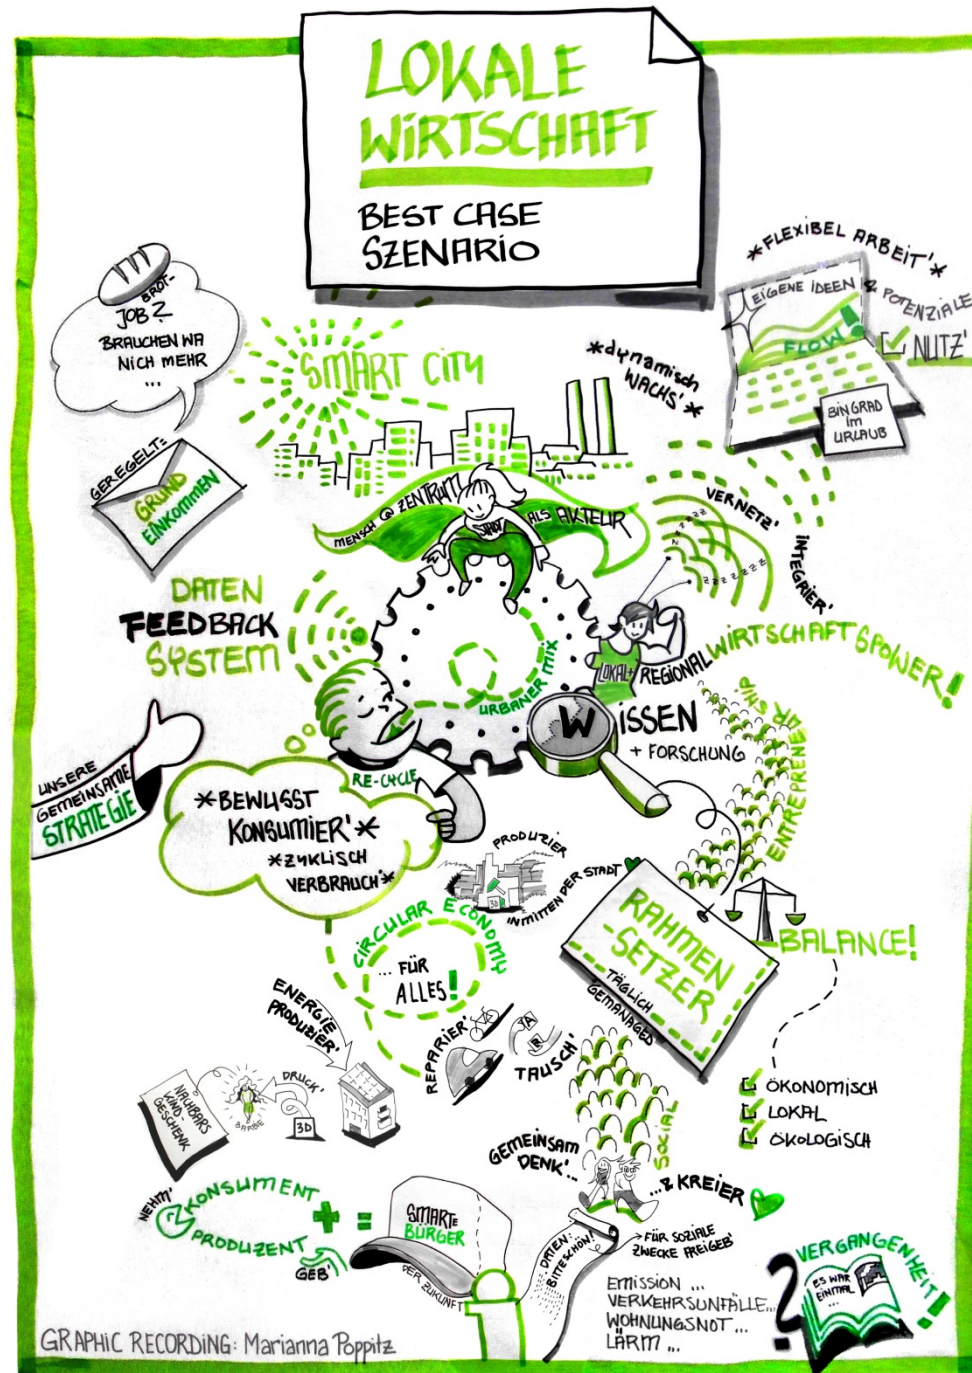 LOKALE
WIRTSCHAFT
BEST CASE
SZENARIO
BROT-
JOB?
BRAUCHEN WA
NICH MEHR
...
GEREGELT:
GRUND
EINKOMMEN
SMART CITY
*dynamisch
WACHS'*
*FLEXIBEL ARBEIT'*
EIGENE IDEEN & POTENZIALE
FLOW!
NUTZ'
BIN GRAD
IM
URLAUB
MENSCH @ ZENTRUM
STADT ALS AKTEUR
VERNETZ'
INTEGRIER'
ZZZZZZ
ZZZZZZZ
DATEN
FEEDBACK
SYSTEM
URBANER MIX
LOKAL+ REGIONAL WIRTSCHAFTSPOWER!
WISSEN
+ FORSCHUNG
ENTREPRENEURSHIP
UNSERE
GEMEINSAME
STRATEGIE
RE-CYCLE
*BEWUSST
KONSUMIER'*
*ZYKLISCH
VERBRAUCH'*
PRODUZIER
3D
INMITTEN DER STADT
CIRCULAR ECONOMY
... FÜR
ALLES!
RAHMEN
-SETZER
TÄGLICH
GEMANAGED
BALANCE!
ÖKONOMISCH
LOKAL
ÖKOLOGISCH
ENERGIE
PRODUZIER'
REPARIER'
TAUSCH'
A
B
DRUCK'
3D
BARBIE
NACHBARS
KIND-
GESCHENK
SOCIAL
GEMEINSAM
DENK'...
...& KREIER
NEHM'
KONSUMENT
+
PRODUZENT
GEB'
=
SMARTE
BÜRGER
DER ZUKUNFT
DATEN:
BITTESCHÖN!
FÜR SOZIALE
ZWECKE FREIGEB'
EMISSION ...
VERKEHRSUNFÄLLE...
WOHNUNGSNOT...
LÄRM ...
?
VERGANGENHEIT!
ES WAR
EINMAL
...
GRAPHIC RECORDING: Marianna Poppitz